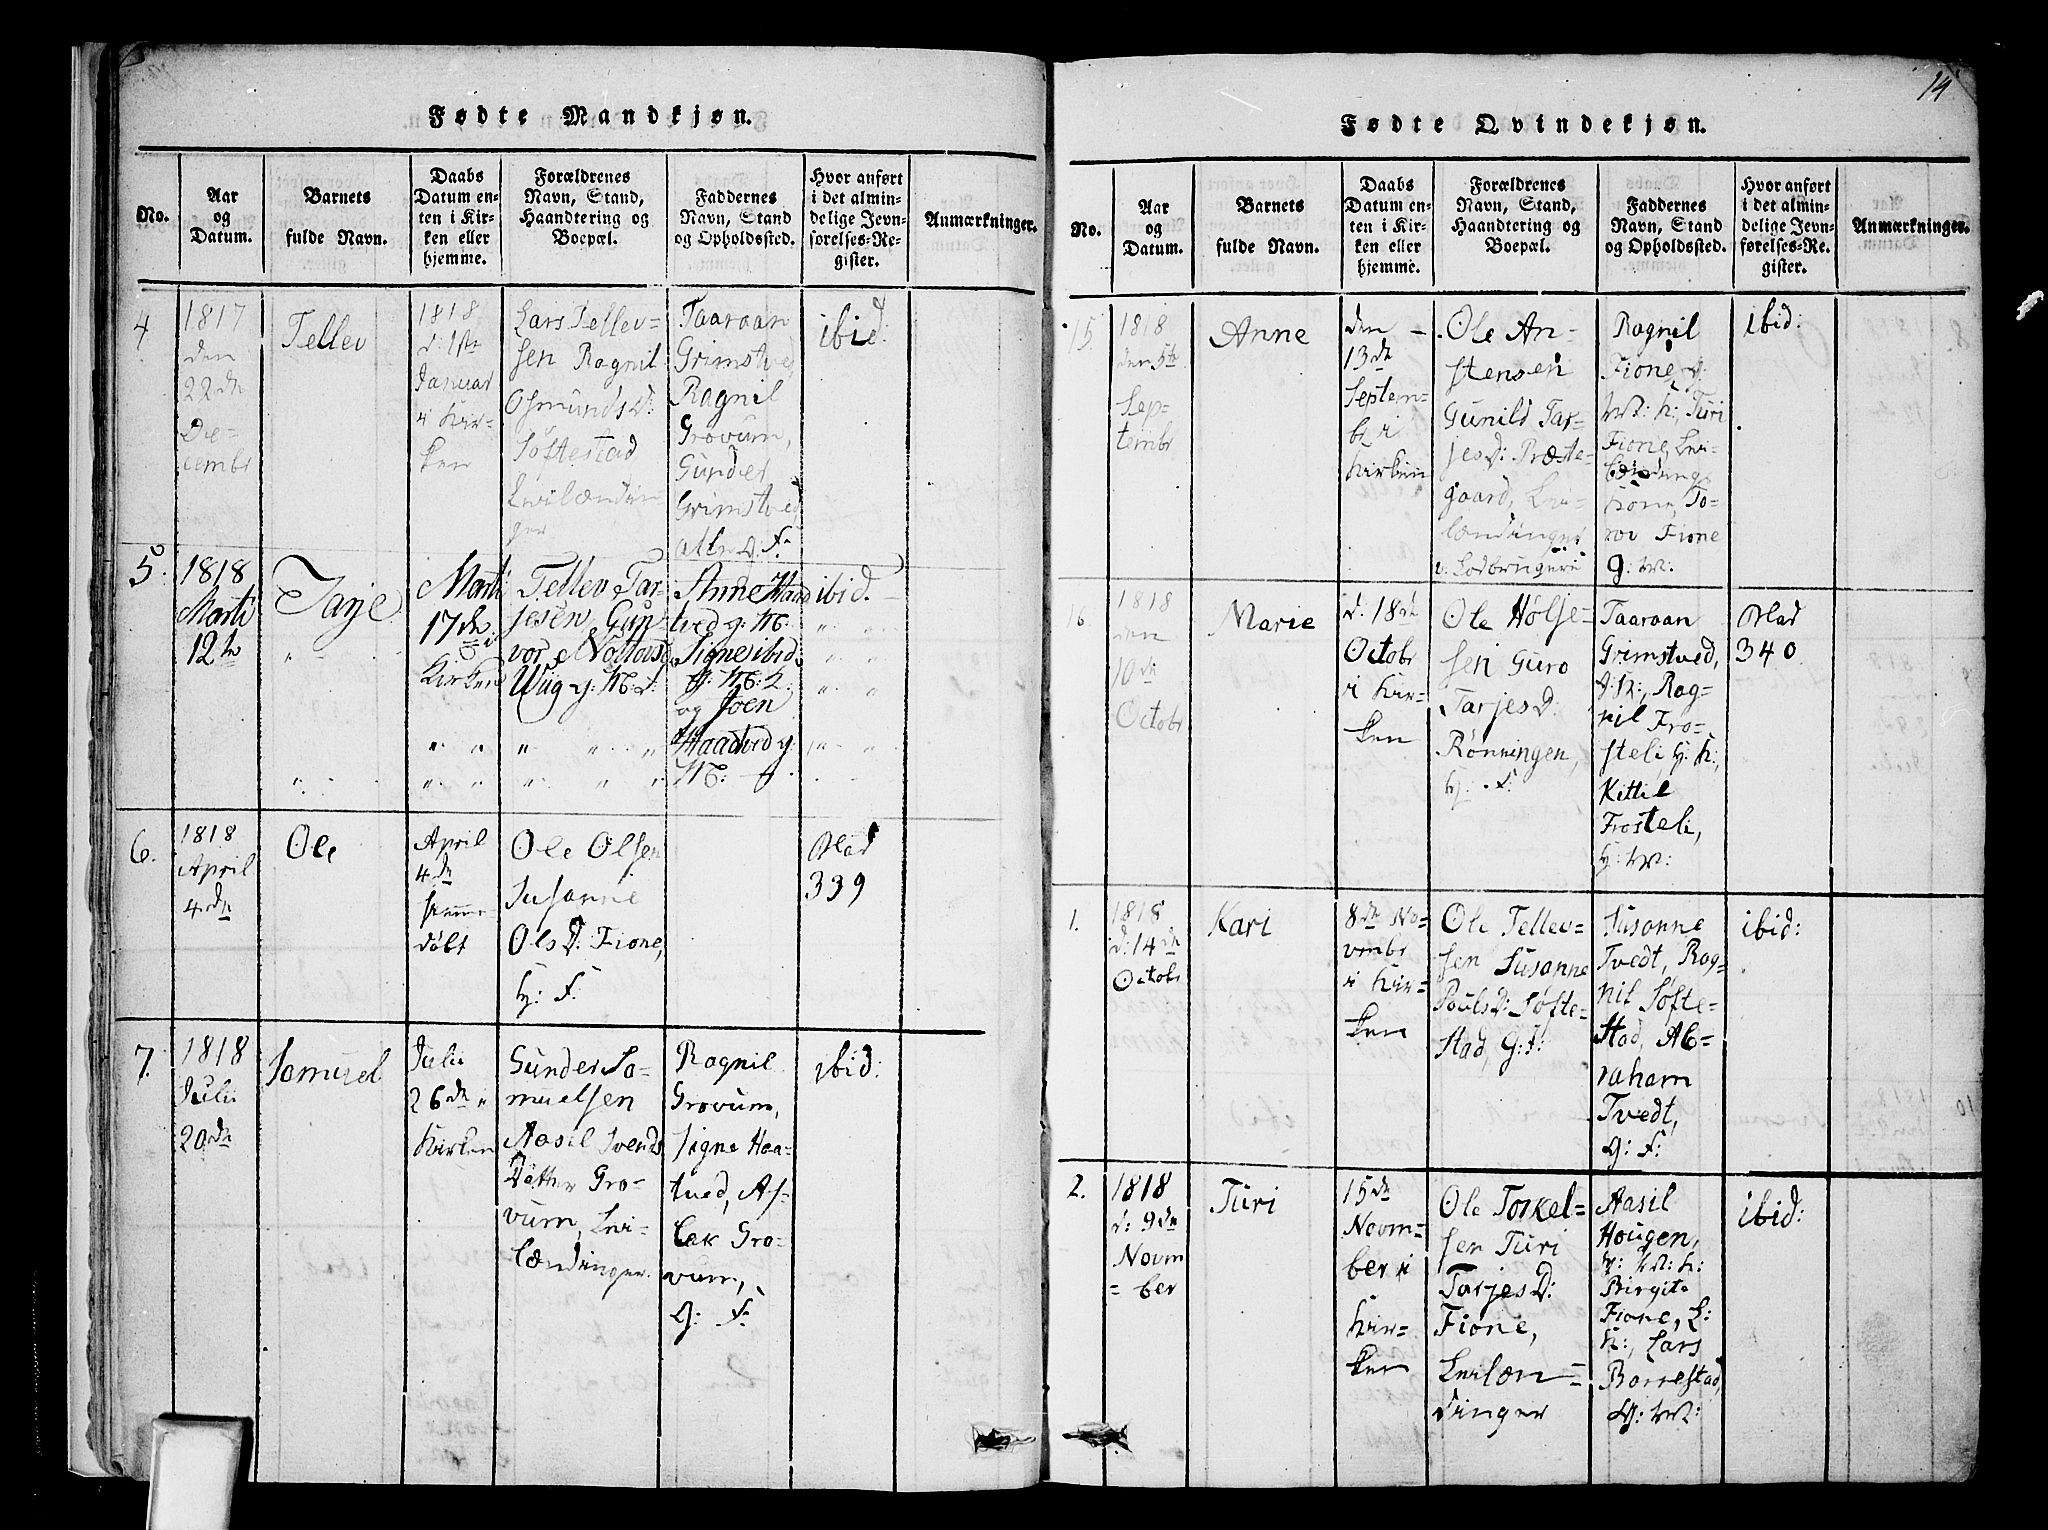 Fødte Mandkjøn.
No.
Aar
og
Datum.
Barnets
fulde Navn.
Daabs
Datum en-
ten i Kir-
ken eller
hjemme.
Forældrenes
Navn, Stand,
Haandtering og
Boepæl.
Faddernes
Navn, Stand
og Opholdssted.
Hvor anført
i det almin-
delige Jevn-
førelses-Re-
gister.
Anmærkninger.
4
1817
den
22de
De-
cembr
Tellev
1818
d. 1ste
Januar
i Kir-
ken
Lars Tellev=
sen Ragnil
Osmunds D:
Søftestad
Leilændin
ger
Taaraan
Grimstved
Ragnil
Grovum,
Gunder
Grimstved
alle g. F.
ibid.
5.
1818
Marti
12te
Tarje
Marti
17de i
Kirken
Tellev Tar-
jesen, Gun
vor Nottovs
Wiig g: M:
Anne Haad
tved g: M:
Signe ibid.
g: M:
og Joen
Haadtved g:
M:
ibid.
6.
1818
April
4de
Ole
April
4de
hjemme-
døbt
Ole Olsen
Susanne
Ols D: Fione,
g: F.
Blad
339
7.
1818
Julii
20de
Samuel
Julii
26de i
Kirken
Gunder Sa-
muelsen
Aasil Svends
Datter Gro-
vum, Lei-
lændinger.
Ragnil
Grovum,
Signe Haa-
tved, As-
lak Gro-
vum,
g: F.
ibid:
14
Fødte Qvindekjøn.
No.
Aar
og
Datum.
Barnets
fulde Navn.
Daabs
Datum en-
ten i Kir-
ken eller
hjemme.
Forældrenes
Navn, Stand,
Haandtering og
Boepæl.
Faddernes
Navn, Stand
og Opholdssted.
Hvor anført
i det almin-
delige Jevn-
førelses-Re-
gister.
Anmærkninger.
15
1818
den 5te
Sep-
tembr
Anne
den
13de
Septem-
br i
Kirken
Ole An-
stensen
Gunild Tar-
jes D: Præste-
gaard, Lei-
lændinger
Ragnil
Fione,
Turi
Fione, Lei-
lændings
kone, To-
rov Fione
g: M:
ibid:
16
1818
den
10de
Octobr
Marie
d. 18de
Octobr
i Kir-
ken
Ole Hølje-
sen Guro
Tarjes D:
Rønningen,
g: F:
Taaraan
Grimstved,
g: K:, Rag-
nil Fro-
steli, g: K:,
Kittil
Frosteli,
g: M:
Blad
340
1.
1818
d: 14de
Octobr
Kari
8de No-
vembr
i Kir-
ken
Ole Tellev-
sen Susanne
Pouls D: Søfte-
stad, G: F:
Susanne
Tvedt, Rag-
nil Søfte-
stad, Ab-
raham
Tvedt,
g: F:
ibid:
2.
1818
d: 9de
Novm
=ber
Turi
15de
Novm-
ber i
Kir-
ken
Ole Torkel-
sen Turi
Tarjes D:
Fione,
Leilæn=
dinger
Aasil
Hougen,
Birgite
Fione, L:
K:, Lars
Borrestad,
g: M:
ibid: